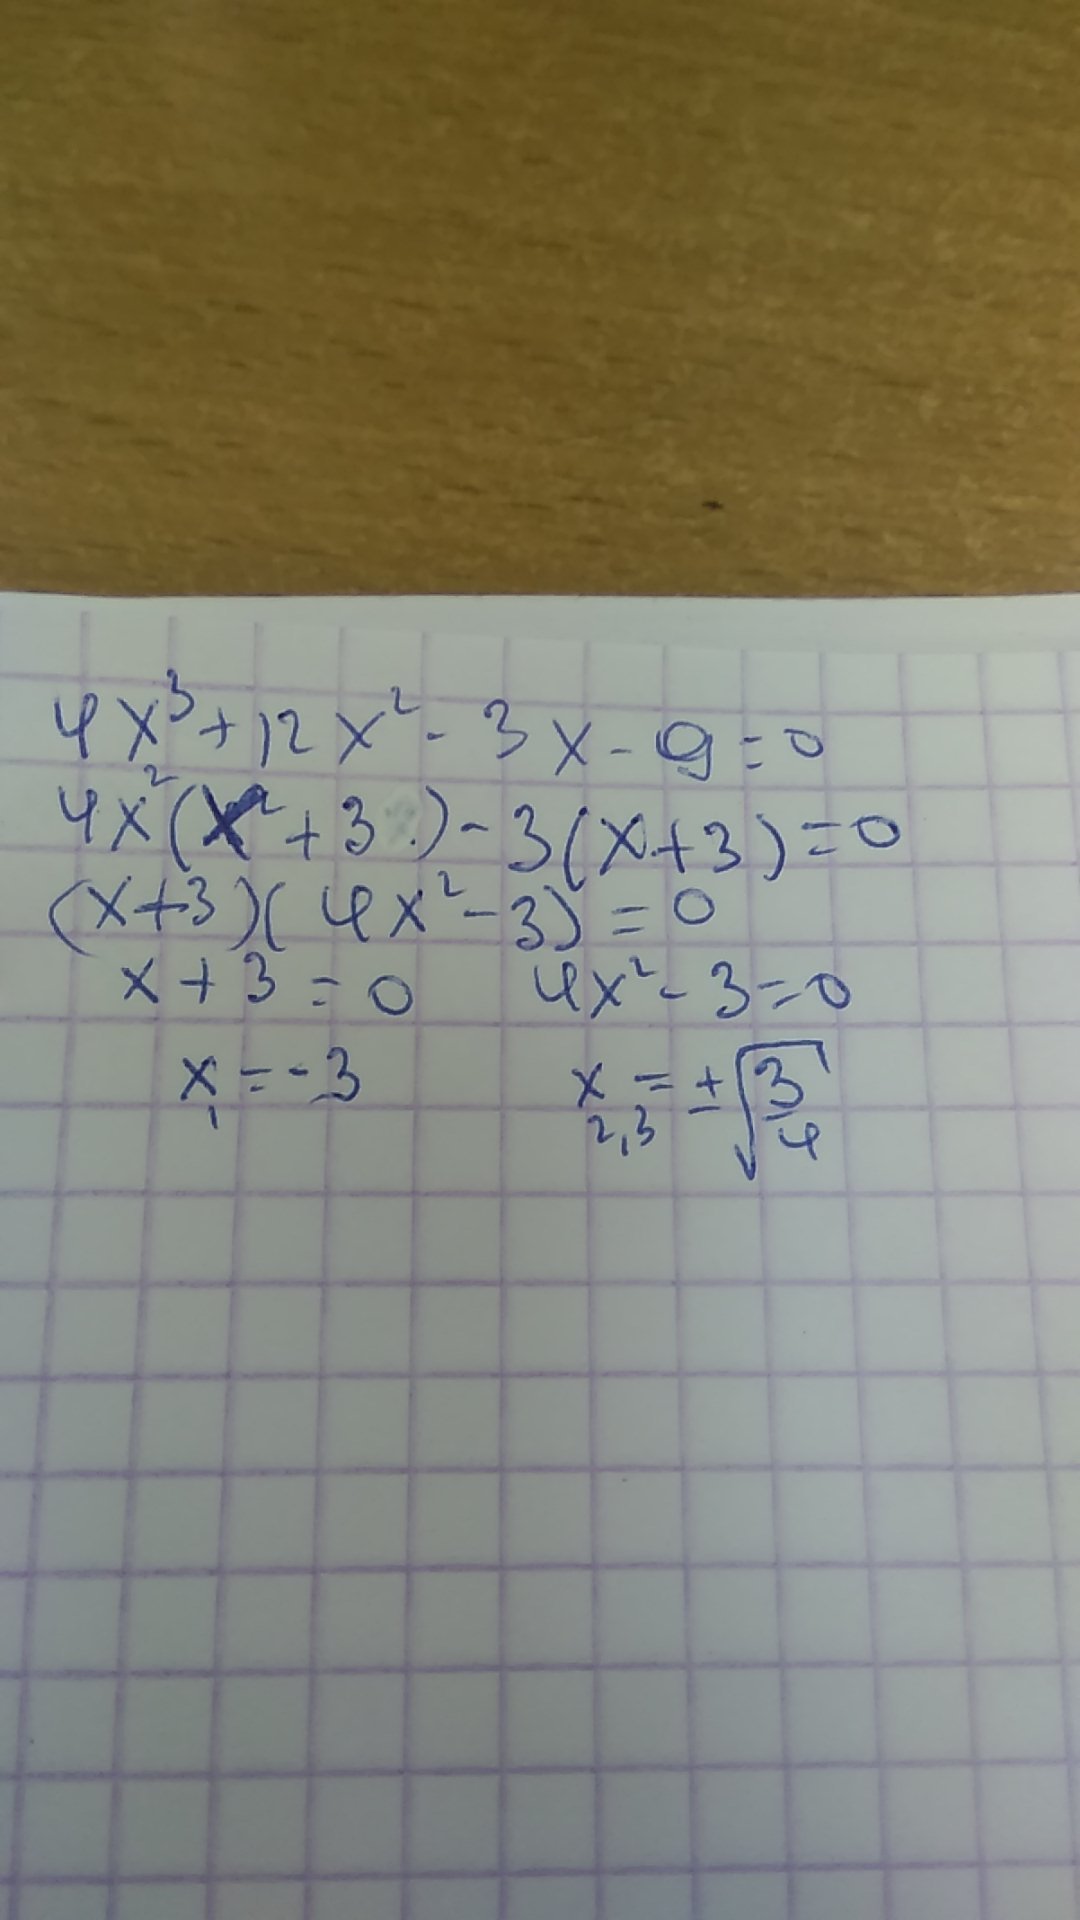 4x³+12x²-3x-9=0
4x²(x²+3)-3(x+3)=0
(x+3)(4x²-3)=0
x+3=0 4x²-3=0
x₁=-3 x₂,₃=±√(3/4)